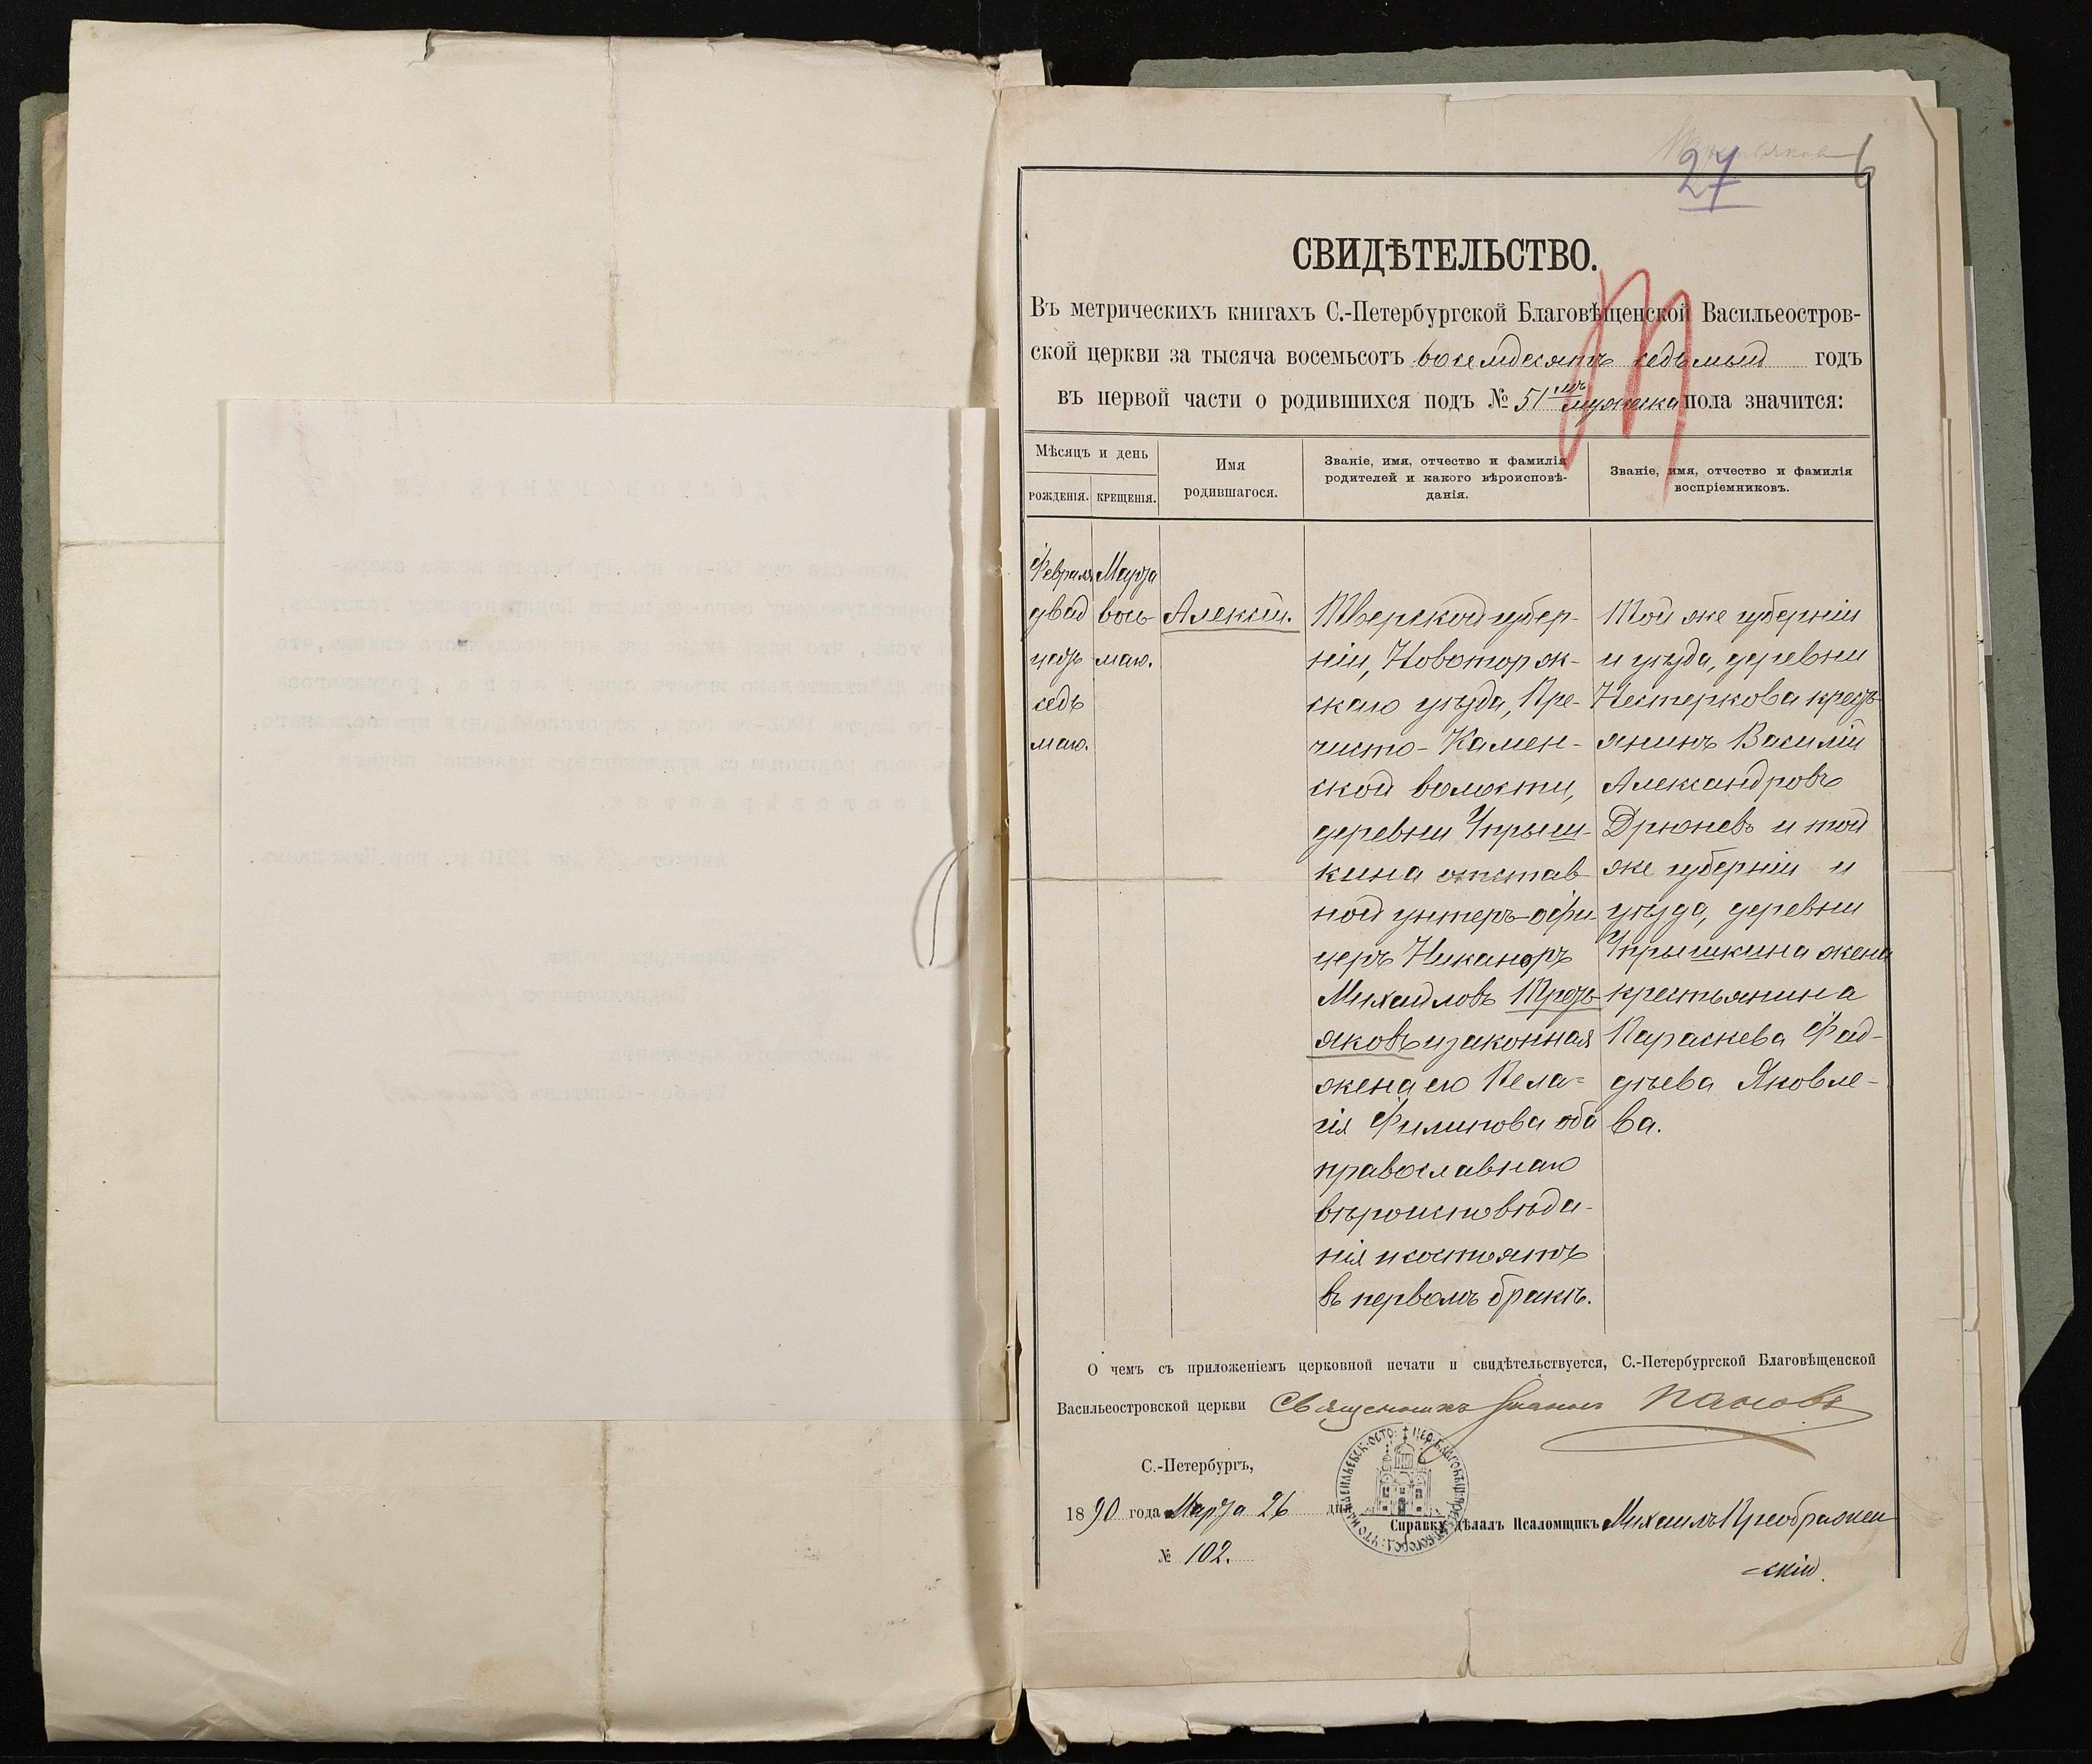 27
6
СВИДѢТЕЛЬСТВО.
Въ метрическихъ книгахъ С.-Петербургской Благовѣщенской Васильеостров-
ской церкви за тысяча восемьсотъ восемдесятъ седьмый годъ
въ первой части о родившихся подъ № 51мъ мужеска пола значится:
Мѣсяцъ и день
РОЖДЕНІЯ. КРЕЩЕНІЯ.
Имя
родившагося.
Званіе, имя, отчество и фамилія
родителей и какого вѣроисповѣ-
данія.
Званіе, имя, отчество и фамилія
воспріемниковъ.
Февраля
двад
цать
седь
маго.
Марта
вось
маго.
Алексій.
Тверской губер-
ніи, Новоторж-
скаго уѣзда, Пре-
чисто-Камен-
ской волости,
деревни Упрыш-
кина отстав
ной унтеръ-офи
церъ Никаноръ
Михайловъ Треть
яковъ и законная
жена его Пела=
гія Филипова оба
православнаго
вѣроисповѣда-
нія и состоятъ
въ первомъ бракѣ.
Той же губерніи
и уѣзда, деревни
Нестеркова кресть
янинъ Василій
Александровъ
Дрюневъ и той
же губерніи и
уѣзда, деревни
Упрышкина жена
крестьянина
Параскева Фад-
дѣева Яковле-
ва.
О чемъ съ приложеніемъ церковной печати и свидѣтельствуется, С.-Петербургской Благовѣщенской
Васильеостровской церкви Священникъ Іоаннъ Пановъ
С.-Петербургъ,
1890 года Марта 26 дня
Справку дѣлалъ Псаломщикъ Михаилъ Преображен
-скій.
№ 102.